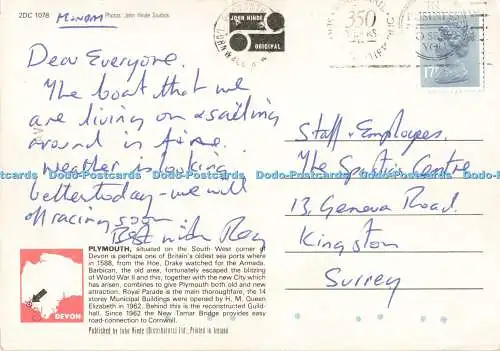 2DC 1078
MONDAY
Photos: John Hinde Studios
JOHN HINDE
ORIGINAL
350
YEARS
17P
Dear Everyone.
The boat that we
are living on & sailing
around in fine.
Weather is looking
better today - we will
off racing soon
Best wish Roy
Staff & Employees.
The Centre
13, Geneva Road.
Kingston
Surrey
PLYMOUTH, situated on the South West corner of
Devon is perhaps one of Britain's oldest sea ports where
in 1588, from the Hoe, Drake watched for the Armada.
Barbican, the old area, fortunately escaped the blitzing
of World War II and this, together with the new City which
has arisen, combines to give Plymouth both old and new
attraction. Royal Parade is the main thoroughfare, the 14
storey Municipal Buildings were opened by H. M. Queen
Elizabeth in 1962. Behind this is the reconstructed Guild-
hall. Since 1962 the New Tamar Bridge provides easy
road-connection to Cornwall.
DEVON
Published by John Hinde (Distributors) Ltd., Printed in Ireland
Dodo-Postcards Dodo-Postcards Dodo-Postcards Dodo-Postcards
Dodo-Postcards Dodo-Postcards Dodo-Postcards